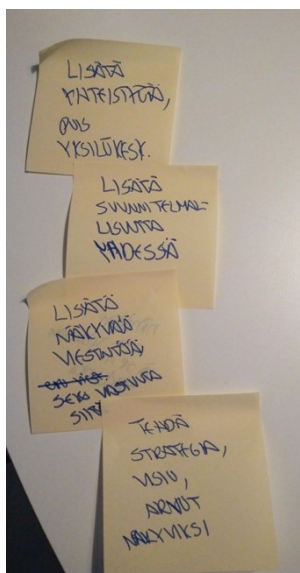 LISÄTÄ
YHTEISTYÖTÄ,
POIS
YKSILÖKESK.
LISÄTÄ
SUUNNITELMAL-
LISUUTTA
YHDESSÄ
LISÄTÄ
NÄKYVÄÄ
VIESTINTÄÄ
SEKÄ VASTUUTA
SIITÄ
TEHDÄ
STRATEGIA,
VISIO,
ARVOT
NÄKYVIKSI